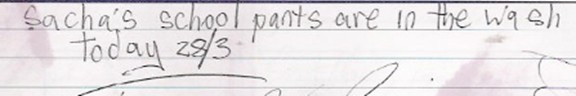 Sacha's school pants are in the wash
today 28/3